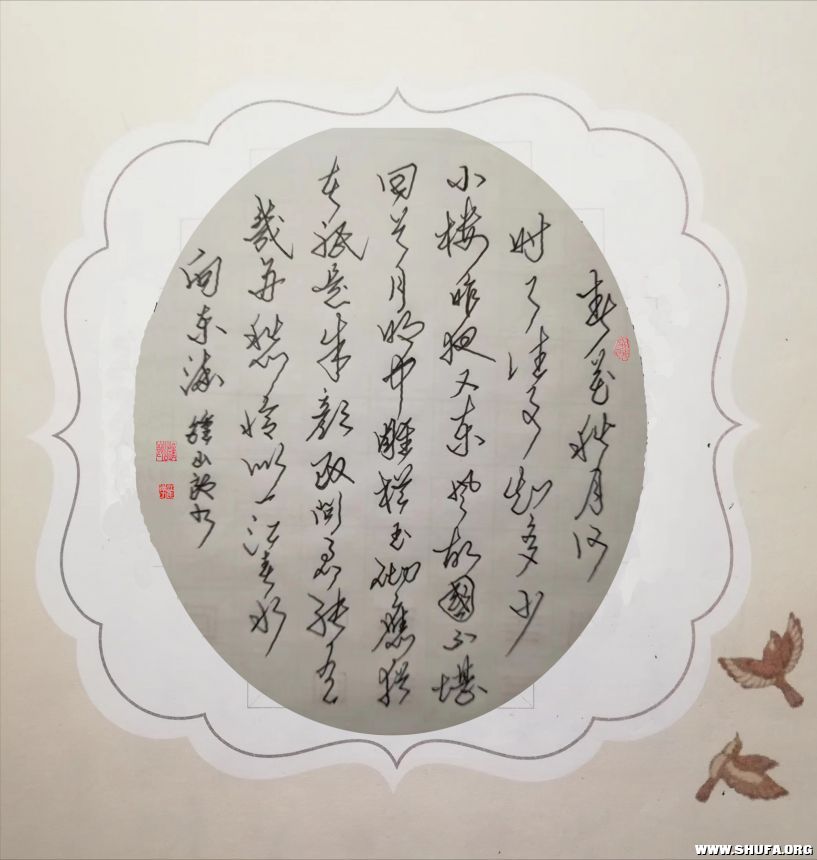 春花秋月何
时了往事知多少
小楼昨夜又东风故國不堪
回首月明中雕栏玉砌應猶
在祇是朱颜改问君能有
幾多愁恰似一江春水
向东流
WWW.SHUFA.ORG